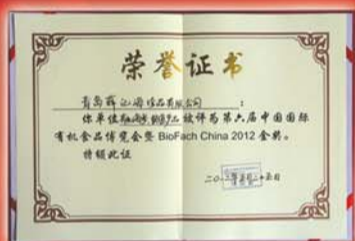 荣誉证书
青岛 海 品有限公司：
你单位 被评为第六届中国国际
有机食品博览会暨 BioFach China 2012 金奖。
特颁此证
二〇一二年五月二十五日